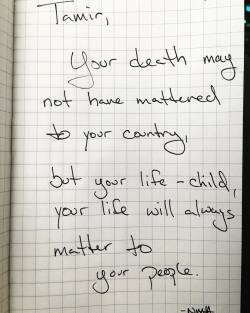 Tamir,
Your death may
not have mattered
to your country,
but your life - child,
your life will always
matter to
your people.